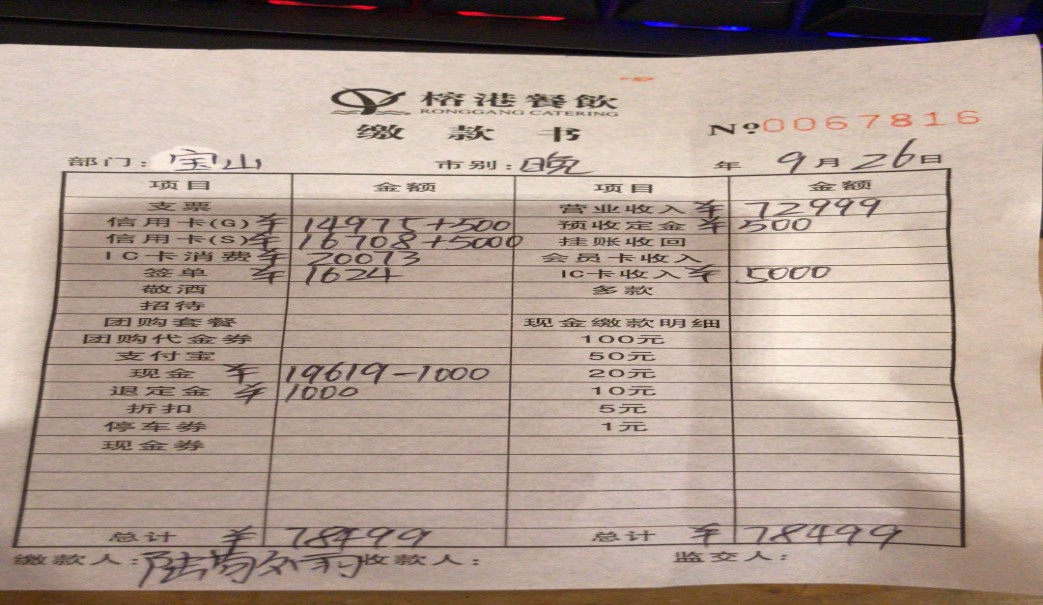 榕港餐飲
RONGGANG CATERING
缴款书
No 0067816
部门：宝山 市别：晚 年 9月26日
项目 金额 项目 金额
支票 营业收入 ¥ 72999
信用卡(G) ¥ 14975+500 预收定金 ¥ 500
信用卡(S) ¥ 16708+5000 挂账收回
IC卡消费 ¥ 20073 会员卡收入
签单 ¥ 1624 IC卡收入 ¥ 5000
敬酒 多款
招待
团购套餐 现金缴款明细
团购代金券 100元
支付宝 50元
现金 ¥ 19619-1000 20元
退定金 ¥ 1000 10元
折扣 5元
停车券 1元
现金券
总计 ¥ 78499 总计 ¥ 78499
缴款人：陆 收款人： 监交人：